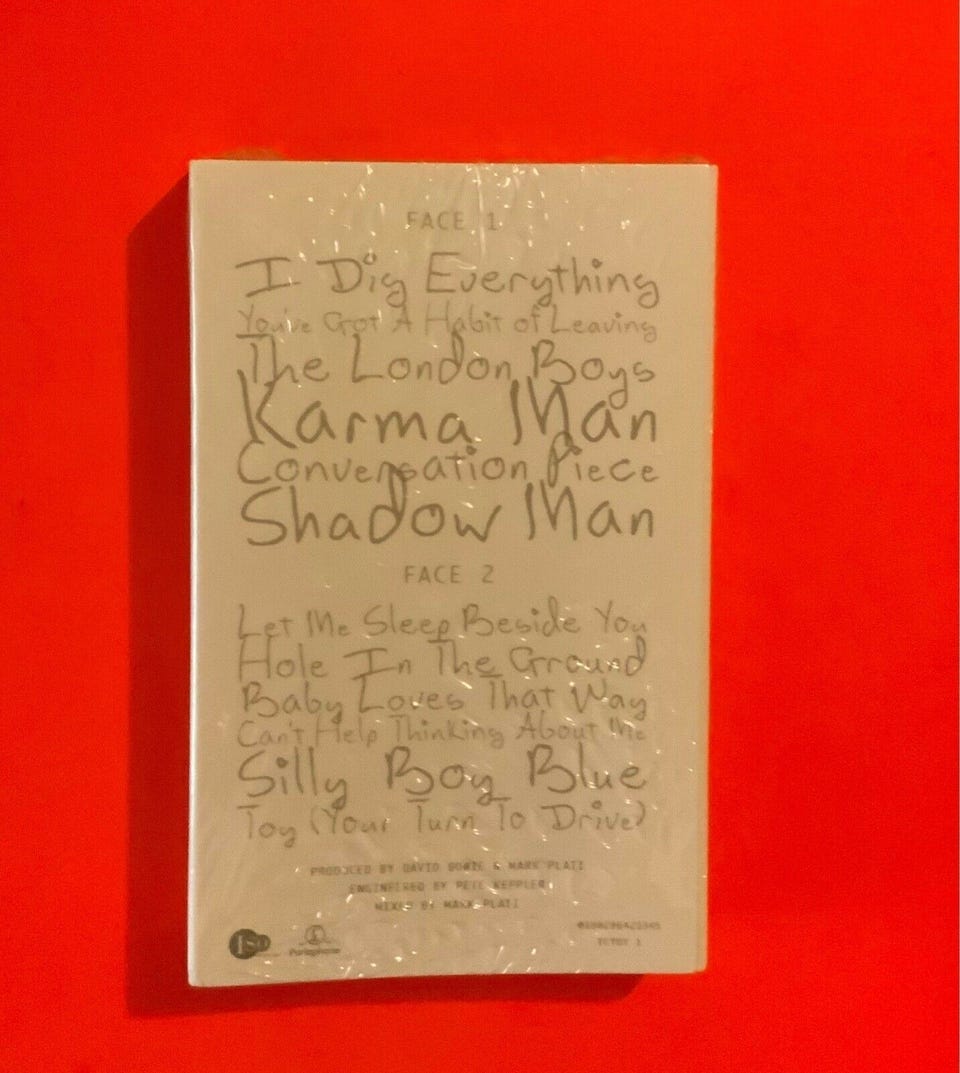 FACE 1
I Dig Everything
You've Got A Habit of Leaving
The London Boys
Karma Man
Conversation Piece
Shadow Man
FACE 2
Let Me Sleep Beside You
Hole In The Ground
Baby Loves That Way
Can't Help Thinking About Me
Silly Boy Blue
Toy (Your Turn To Drive)
PRODUCED BY DAVID BOWIE & MARK PLATI
ENGINEERED BY PETE KEPPLER
MIXED BY MARK PLATI
ISO
Parlophone
TCTOY 1